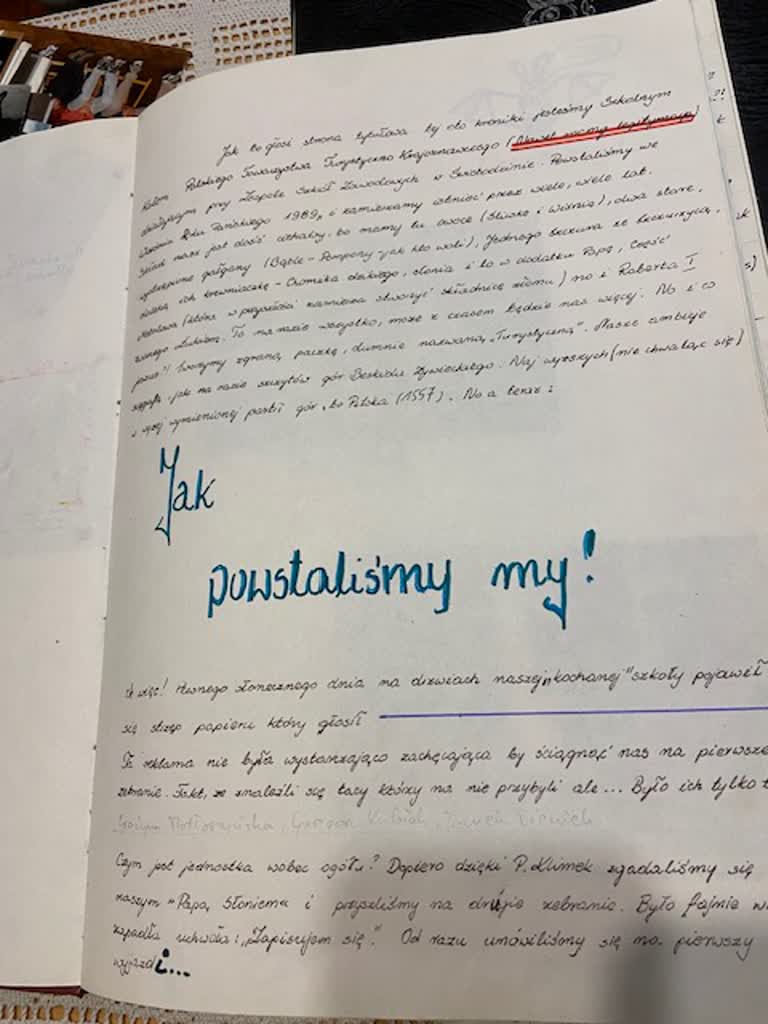 Jak to głosi strona tytułowa tej oto kroniki jesteśmy Szkolnym
Kołem Polskiego Towarzystwa Turystyczno Krajoznawczego (Nawet mamy legitymacje)
działającym przy Zespole Szkół Zawodowych w . Powstaliśmy we
Wrześniu Roku Pańskiego 1989, i zamierzamy istnieć przez wiele, wiele lat.
Skład nasz jest dość ciekawy, bo mamy tu owoce (Śliwkę i Wiśnię), dwa stare,
gałgany (Bąble - Pompony - jak kto woli), jednego ze
daleką ich krewniaczkę - Chomika dzikiego, słonia i to w dodatku Papę, Część
metalową (która w przyszłości zamierza stworzyć składnicę złomu) no i Roberta I
zwanego . To na razie wszystko, może z czasem będzie nas więcej. No i co
jeszcze?! Tworzymy zgraną paczkę, dumnie nazwaną „Turystyczną”. Nasze ambicje
sięgają, jak na razie szczytów gór Beskidu Żywieckiego. Najwyższych (nie chwaląc się)
z wyżej wymienionej partii gór, to Pilska (1557). No a teraz:
Jak
powstaliśmy my!
A więc! Pewnego słonecznego dnia na drzwiach naszej „kochanej” szkoły pojawił
się strzęp papieru który głosił
Ta reklama nie była wystarczająco zachęcająca by ściągnąć nas na pierwsze
zebranie. Fakt, że znaleźli się tacy którzy na nie przybyli ale... Było ich tylko
Czym jest jednostka wobec ogółu? Dopiero dzięki P. Klimek zgadaliśmy się
naszym „Papą Słoniem” i przyszliśmy na drugie zebranie. Było fajnie
zapadła uchwała: „Zapisujem się”. Od razu umówiliśmy się na pierwszy
wyjazd i...